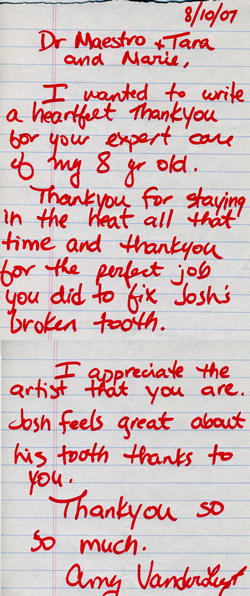 8/10/07
Dr Maestro + Tara
and Marie,
I wanted to write
a heartfelt Thankyou
for your expert care
of my 8 yr old.
Thankyou for staying
in the heat all that
time and thankyou
for the perfect job
you did to fix Josh's
broken tooth.
I appreciate the
artist that you are.
Josh feels great about
his tooth thanks to
you.
Thankyou so
so much.
Amy